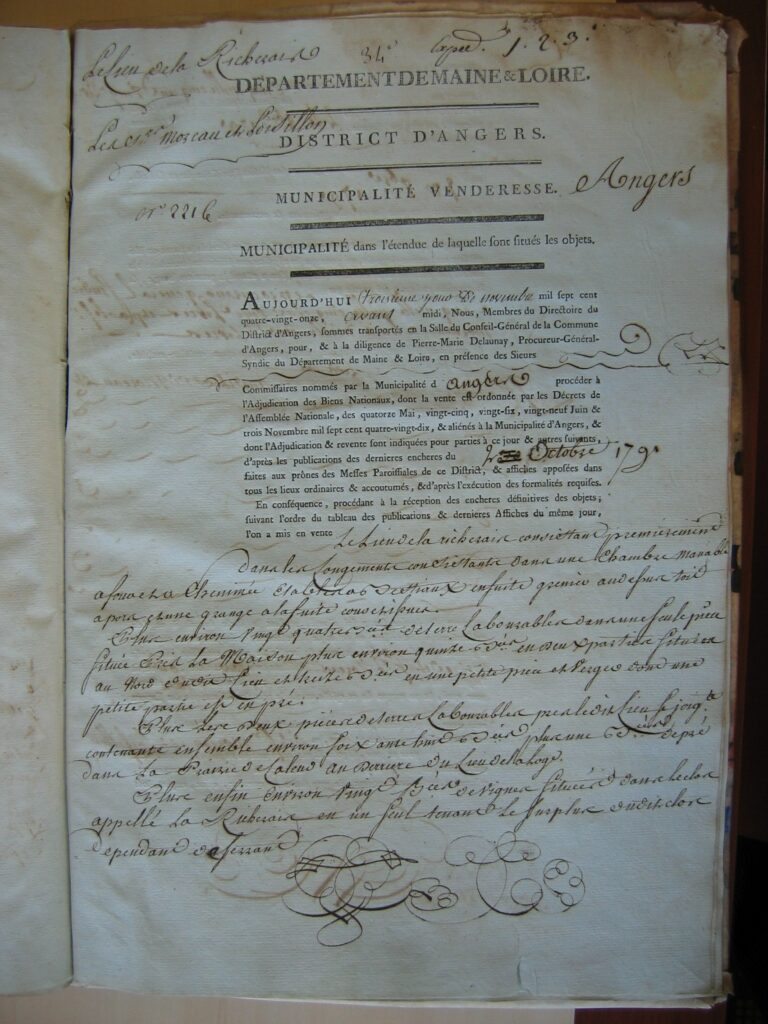 Le Lieu de la Richeraie
34.e exped. 1. 2. 3.
DÉPARTEMENT DE MAINE & LOIRE.
Les Moreau et
DISTRICT D'ANGERS.
MUNICIPALITÉ VENDERESSE. Angers
n.o 2216
MUNICIPALITÉ dans l'étendue de laquelle sont situés les objets.
AUJOURD'HUI troisieme jour de novembre mil sept cent
quatre-vingt-onze, avant midi, Nous, Membres du Directoire du
District d'Angers, sommes transportés en la Salle du Conseil-Général de la Commune
d'Angers, pour, & à la diligence de Pierre-Marie Delaunay, Procureur-Général-
Syndic du Département de Maine & Loire, en présence des Sieurs
Commissaires nommés par la Municipalité d angers procéder à
l'Adjudication des Biens Nationaux, dont la vente est ordonnée par les Décrets de
l'Assemblée Nationale, des quatorze Mai, vingt-cinq, vingt-six, vingt-neuf Juin &
trois Novembre mil sept cent quatre-vingt-dix, & aliénés à la Municipalité d'Angers, &
dont l'Adjudication & revente sont indiquées pour parties à ce jour & autres suivants,
d'après les publications des dernieres encheres du Octobre 1791
faites aux prônes des Messes Paroissiales de ce District, & affiches apposées dans
tous les lieux ordinaires & accoutumés, & d'après l'exécution des formalités requises.
En conséquence, procédant à la réception des encheres définitives des objets;
suivant l'ordre du tableau des publications & dernieres Affiches du même jour,
l'on a mis en vente Le Lieu de la richeraie consistant premierement
dans les Logements consistants dans une Chambre manable
a four et a Cheminée Etables a Bestiaux ensuite grenier au dessus toit
a porcs et une grange a la suite
Plus environ vingt quatre de terre Labourables dans une seule piece
située Près La Maison plus environ quinze en deux parties situées
au Nord dudit Lieu et treize en une petite piece et verger dont une
petite partie est en pré
Plus deux pieces de terres Labourables près ledit Lieu se joig.t
contenante ensemble environ soixante plus une de pré
dans La Prairie de au derriere du Lieu de la Loge.
Plus enfin Environ vingt de vignes situées dans le clos
appellé La Richeraie en un seul tenant Le surplus dudit clos
Dependant de Serrant